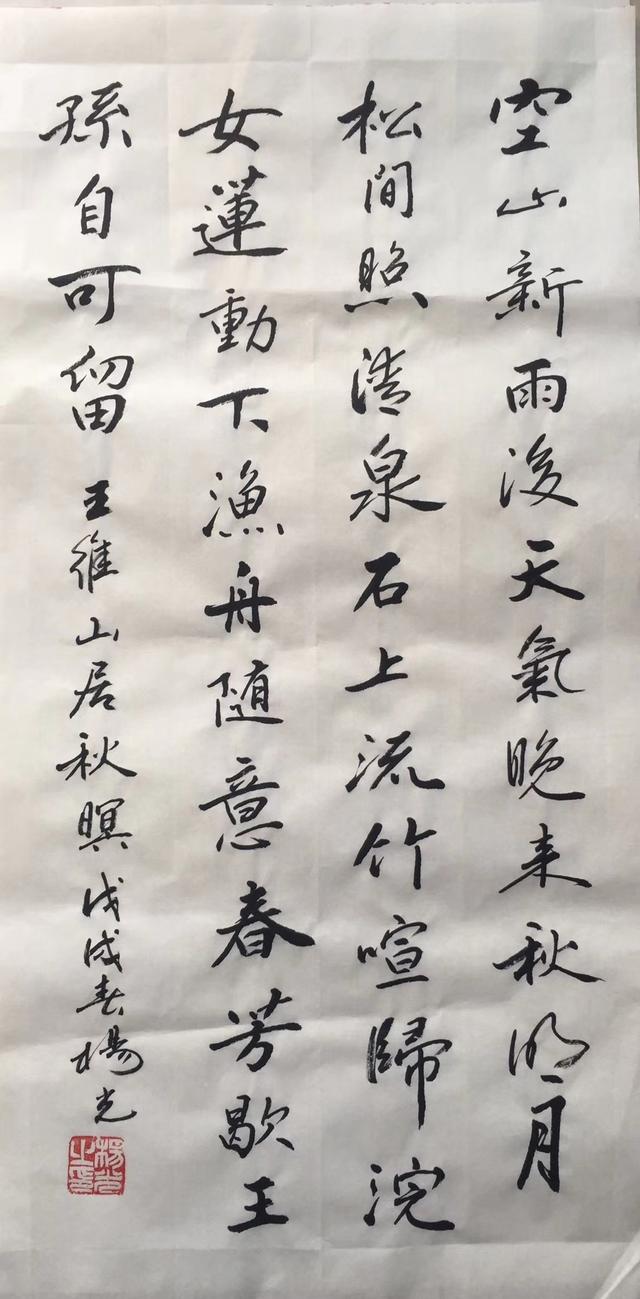 空山新雨後天氣晚来秋明月
松間照清泉石上流竹喧歸浣
女蓮動下漁舟随意春芳歇王
孫自可留王維山居秋暝戊戌春楊光
楊光之印